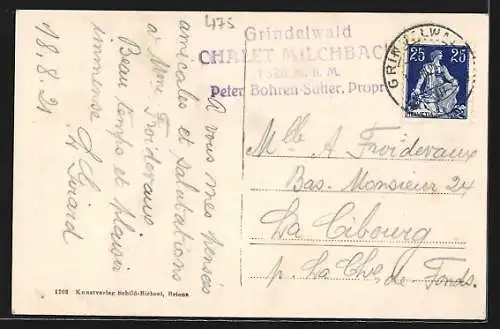 475
Grindelwald
CHALET MILCHBACH
1320 M. ü. M.
Peter Bohren-Sutter, Propr.
GRINDELWALD
25 25
HELVETIA
18.8.21
A vous mes pensées
amicales et salutations
à Mme Froidevaux
Beau temps et plaisir
immense
Girard
Mlle A Froidevaux
Bas. Monsieur 24
La Cibourg
p. La Chx de Fonds.
Kunstverlag Schild-Bichsel, Brienz